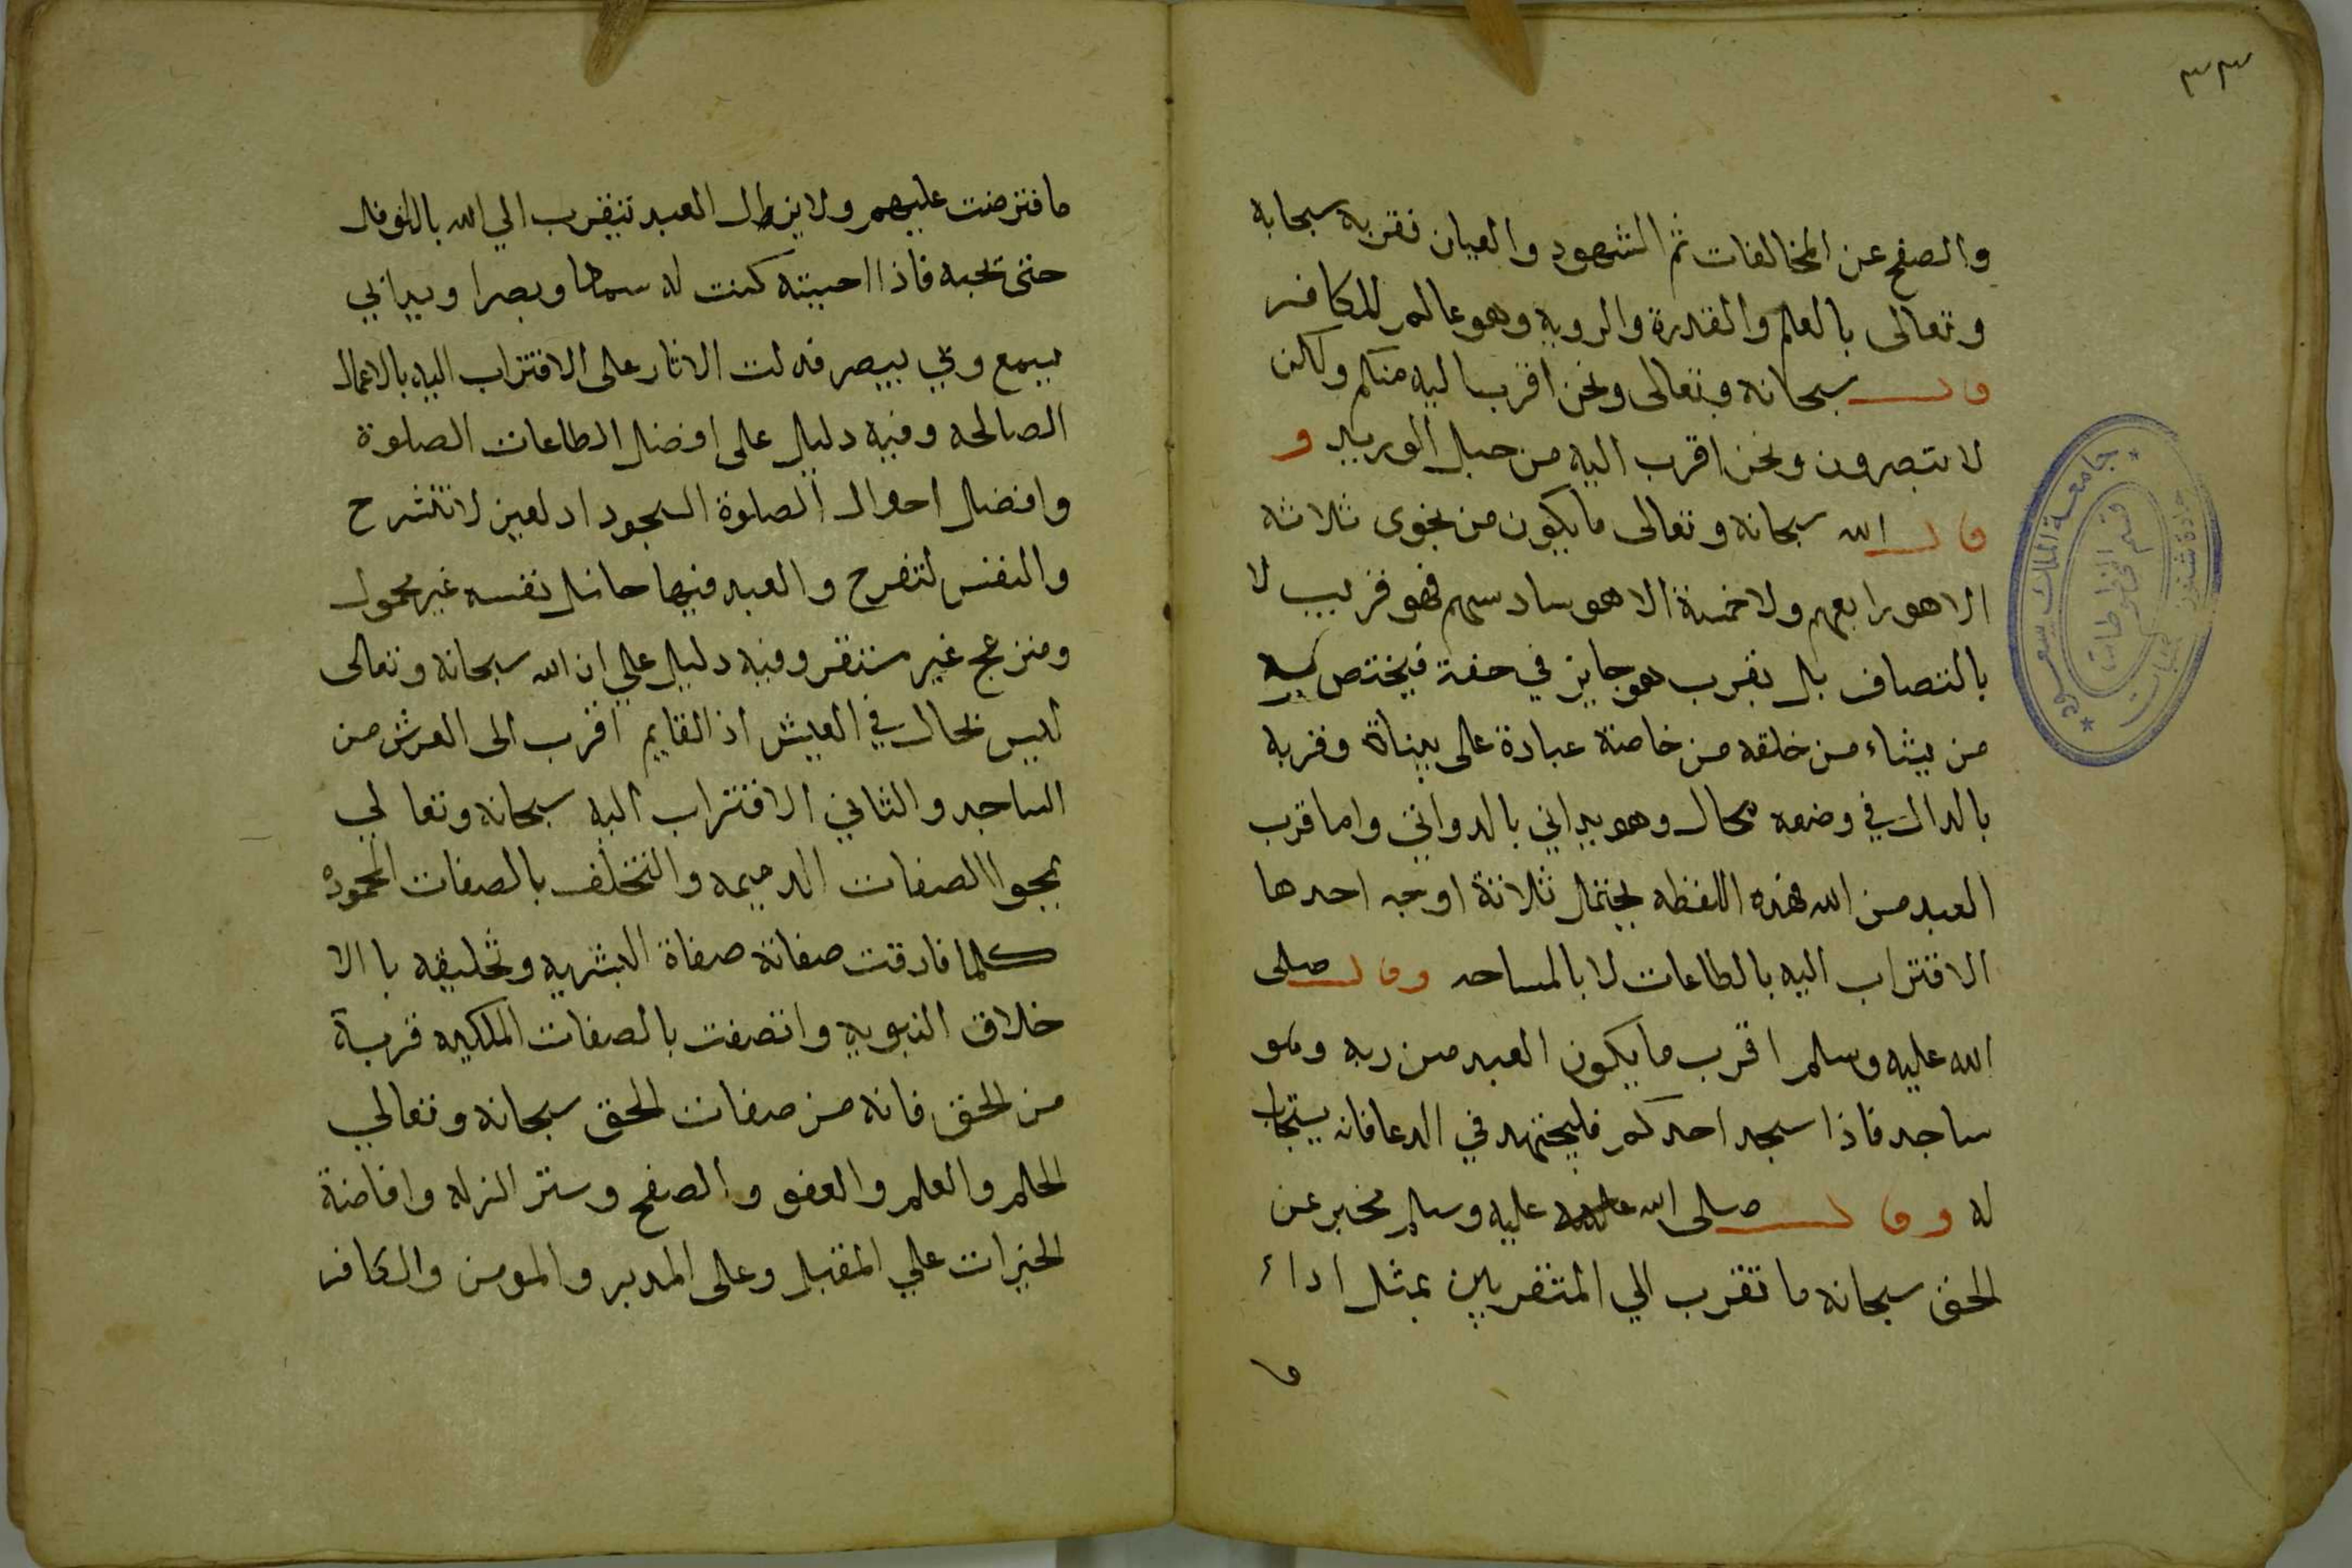 ٣٣
والصفح عن المخالفات ثم الشهود والعيان فقربه سبحابه
وتعالى بالعلم والقدرة والرويه وهو عالم للكافر
وقال سبحانه وتعالى ونحن اقرب اليه منكم ولكن
لا تبصرون ونحن اقرب اليه من حبل الوريد و
قال الله سبحانه وتعالى ما يكون من نجوى ثلاثه
الا هو رابعهم ولا خمسة الا هو سادسهم فهو قريب لا
بالتصاف بل بقرب هو جايز في حقه فيختص به
من يشاء من خلقه من خاصة عبادة على بيناة وقربه
بالدال في وضعه محال وهو يداني بالدواني واما قرب
العبد من الله فهذه اللفظه يحتمل ثلاثة اوجه احدها
الاقتراب اليه بالطاعات لا بالمساحه وقال صلى
الله عليه وسلم اقرب ما يكون العبد من ربه وهو
ساجد فاذا سجد احدكم فليجتهد في الدعا فانه يستجاب
له وقال صلى الله عليه وسلم مخبر عن
الحق سبحانه ما تقرب الي المتقربين بمثل اداء
ما
جامعة الملك سعود
قسم المخطوطات
ما فترضت عليهم ولا يزال العبد تيقرب الي الله بالنوفل
حتى نحبه فاذا احببته كنت له سمعا وبصرا ويدا بي
يسمع وبي يبصر فدلت الاثار على الاقتراب اليه بالاعمال
الصالحه وفيه دليل على افضل الطاعات الصلوة
وافضل احوال الصلوة السجود اد لعين لا تنشرح
والنفس لتفرح والعبد فيها حامل نفسه غير محمول
ومنزعج غير مستقر وفيه دليل علي ان الله سبحانه وتعالى
ليس بحال في العيش اذ القايم اقرب الى العرش من
الساجد والثاني الاقتراب اليه سبحانه وتعالي
بمجوا الصفات الدميمه والتخلف بالصفات المحموده
كلما فارقت صفاته صفاة البشريه وتخليقه با الا
خلاق النبويه واتصفت بالصفات الملكيه قربة
من الحق فانه من صفات الحق سبحانه وتعالي
الحلم والعلم والعفو والصفح وستر الزله وافاضة
الخيرات علي المقبل وعلى المدبر والمومن والكافر